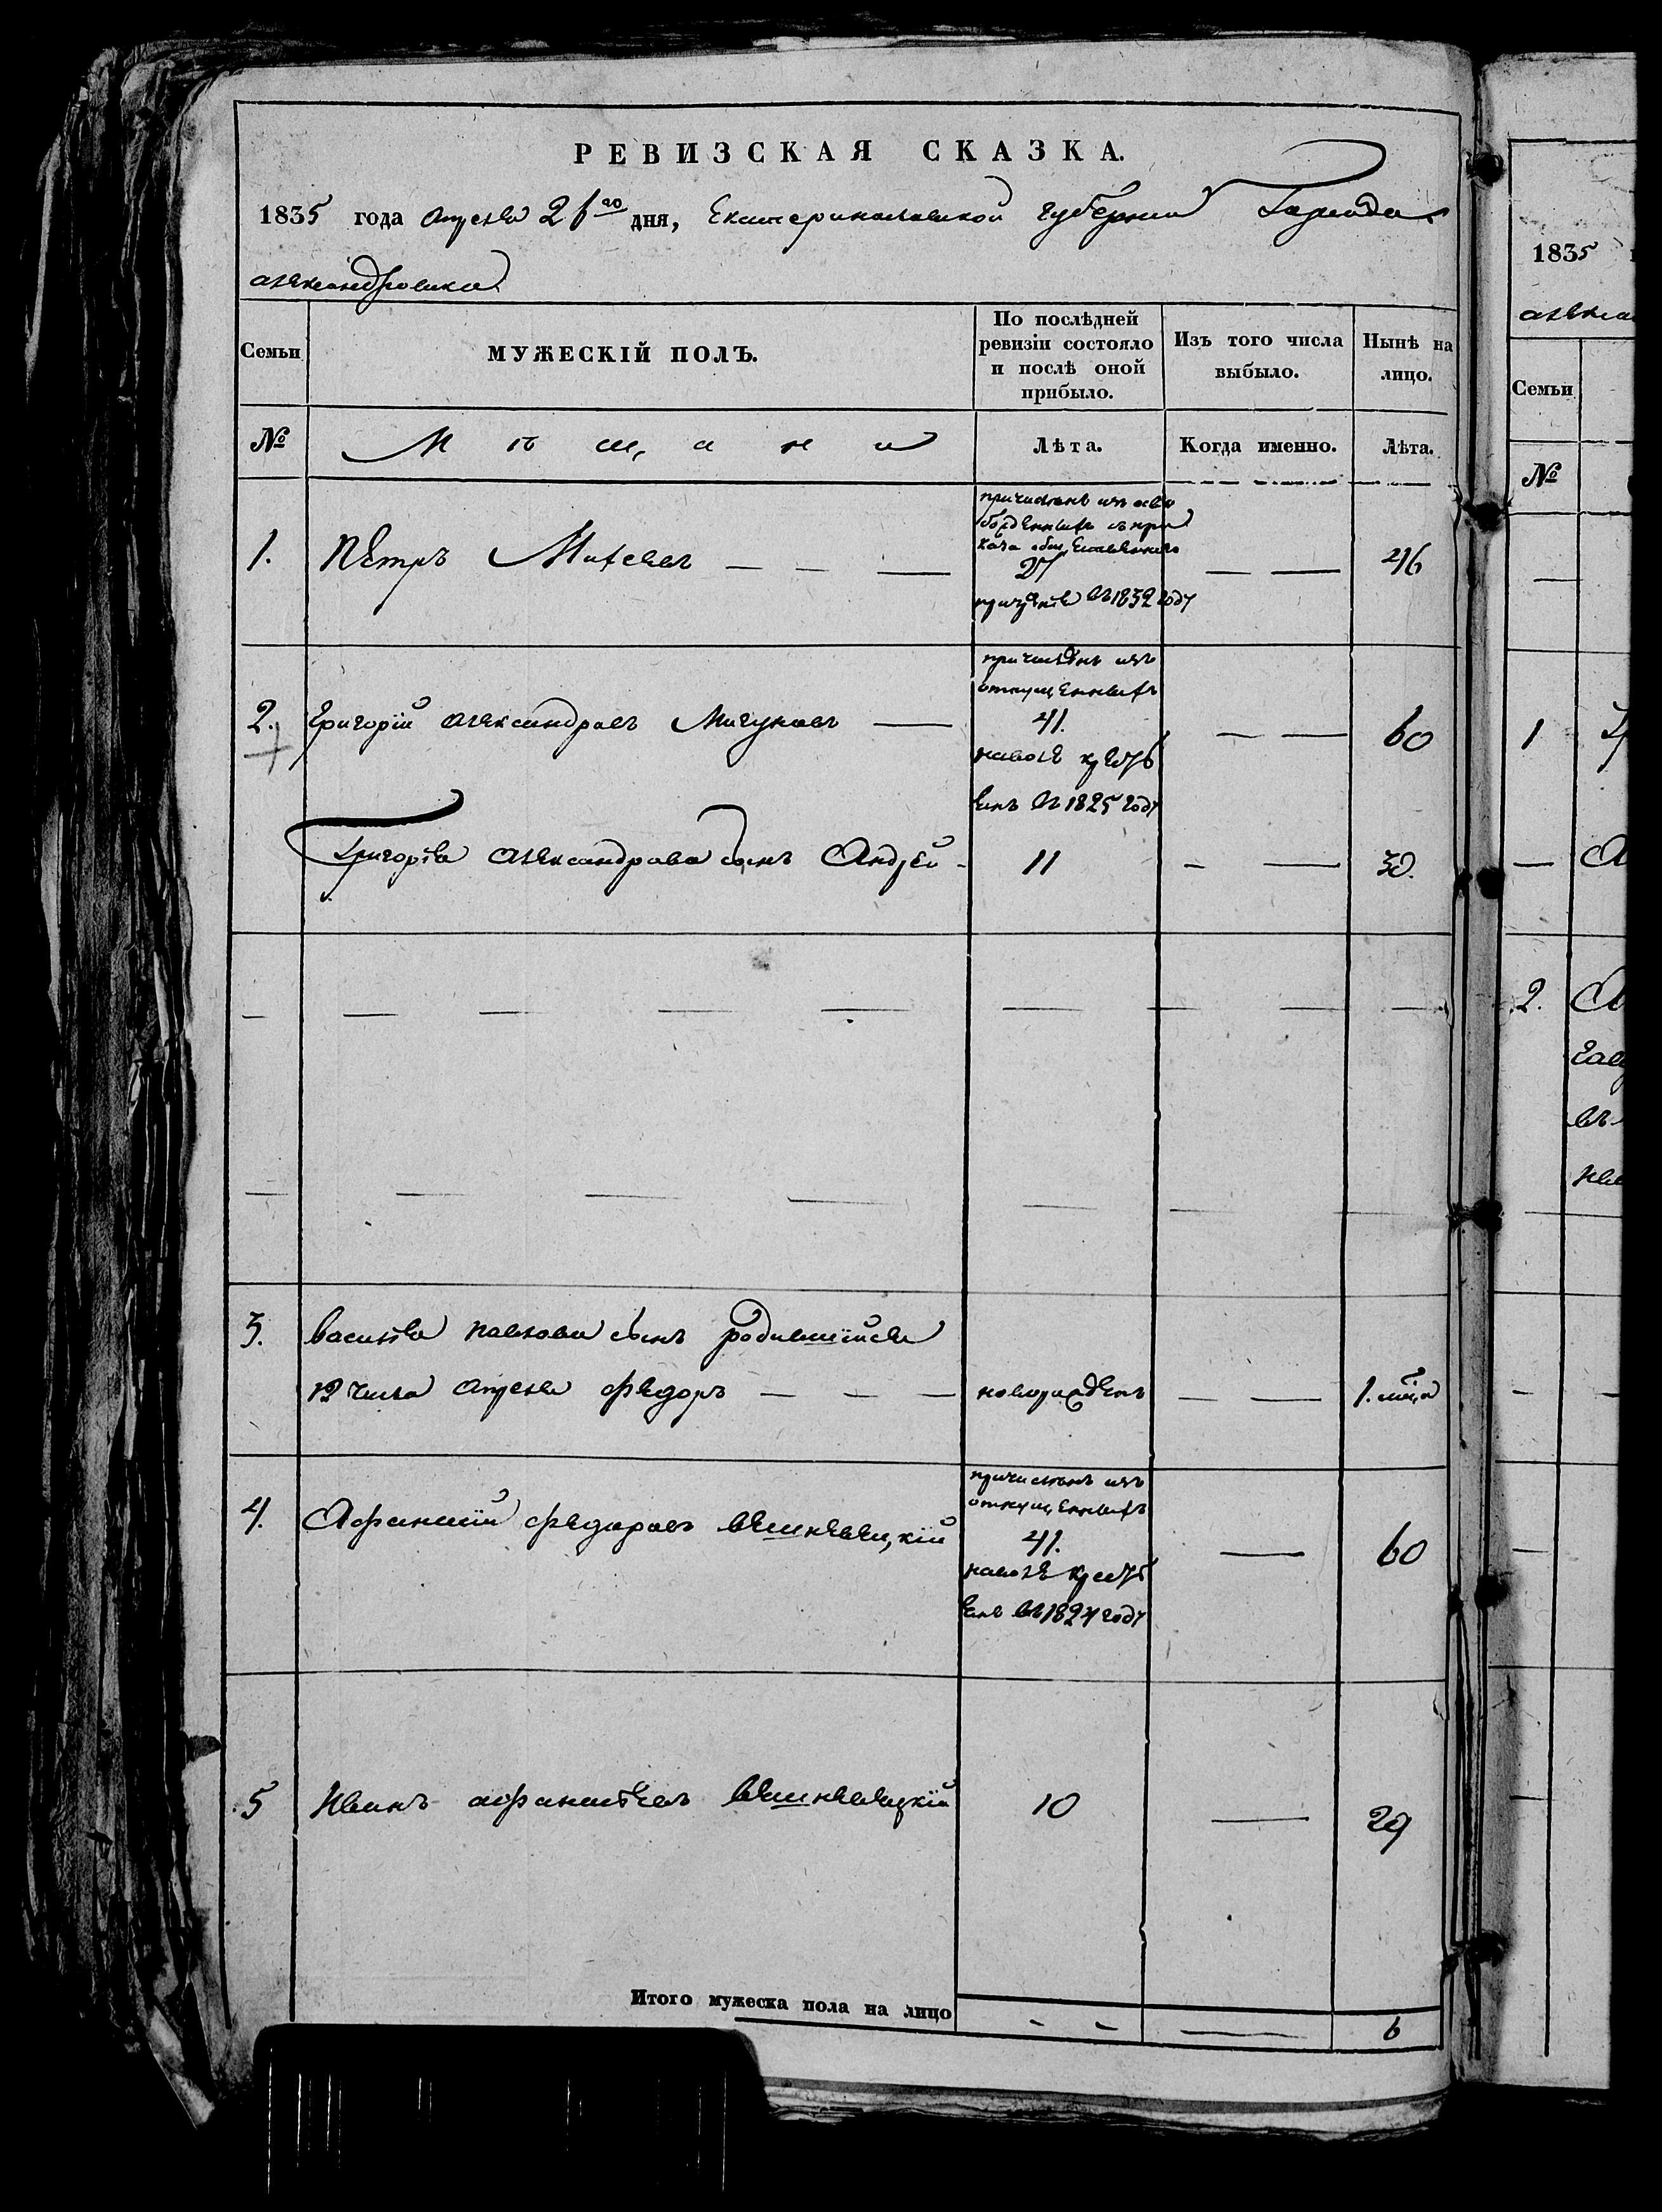 РЕВИЗСКАЯ СКАЗКА.
1835 года апреля 26го дня, Екатеринославской губернии Города
александровска
Семьи
МУЖЕСКІЙ ПОЛЪ.
По послѣдней ревизіи состояло и послѣ оной прибыло.
Изъ того числа выбыло.
Нынѣ на лицо.
№
Мѣщане
Лѣта.
Когда именно.
Лѣта.
причисленъ изъ осво
божденныхъ съ при
каза общественнаго
1. Петръ Михеевъ 27 46
призрѣнія въ 1832 году
причисленъ изъ
отпущенныхъ
2. Григорій александровъ Мигуновъ 41. 60
наволѣ
въ 1825 году
Григорія александрова сынъ Андрей 11 30.
3. василія павлова сынъ родившійся
12 числа апреля федоръ новорожденъ 1.
причисленъ изъ
отпущенныхъ
4. Афанасій федоровъ вешневецкій 41. 60
наволѣ
въ 1824 году
5 Иванъ афанасіевъ вешневецкій 10 29
Итого мужеска пола на лицо 6
1835
Семьи
№
1
2.
въ